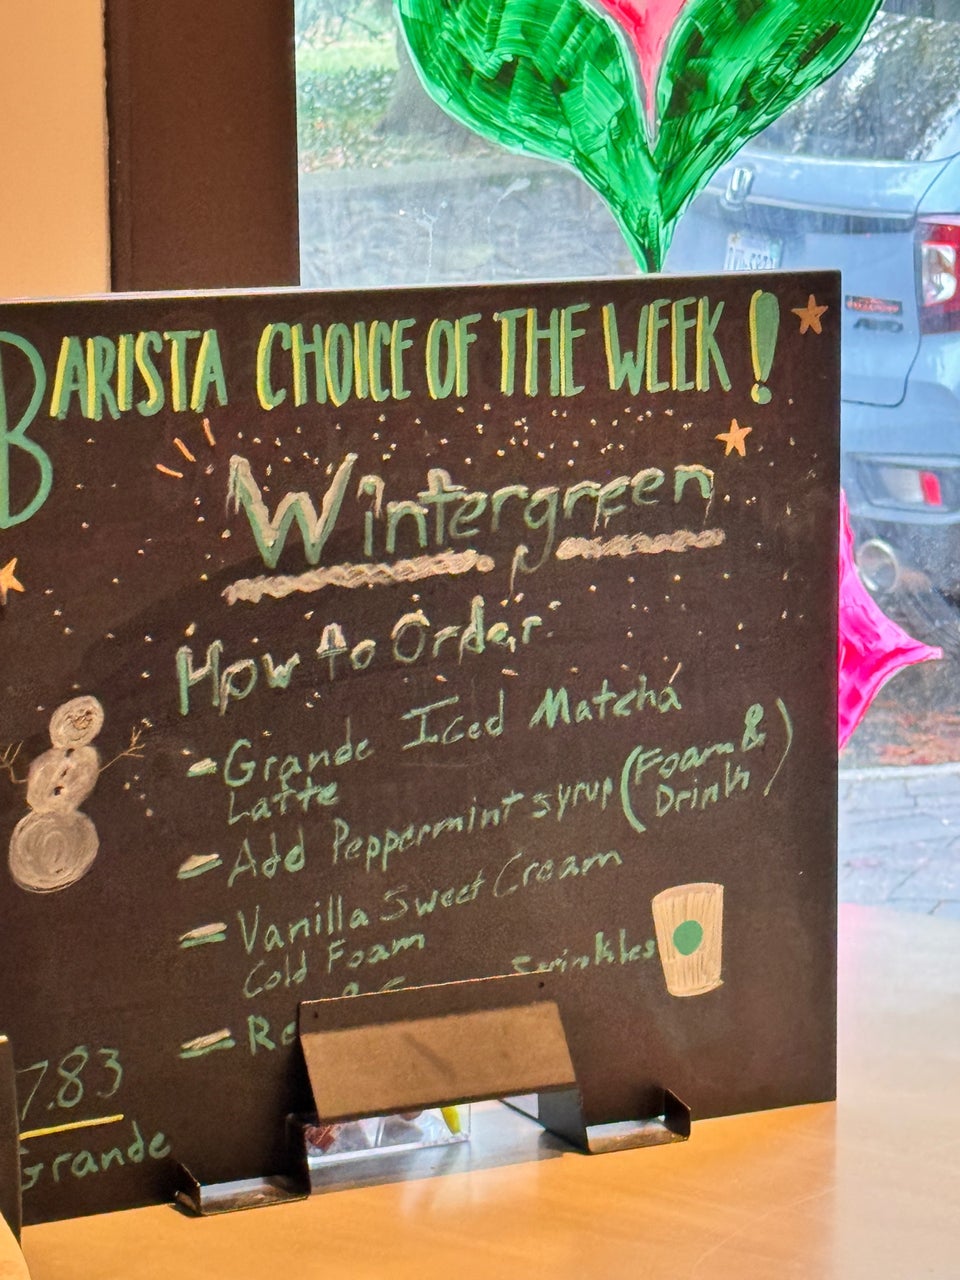 BARISTA CHOICE OF THE WEEK!
Wintergreen
How to Order
- Grande Iced Matcha
Latte
- Add Peppermint syrup (Foam &
Drink)
- Vanilla Sweet Cream
Cold Foam
- Re
Sprinkles
7.83
Grande